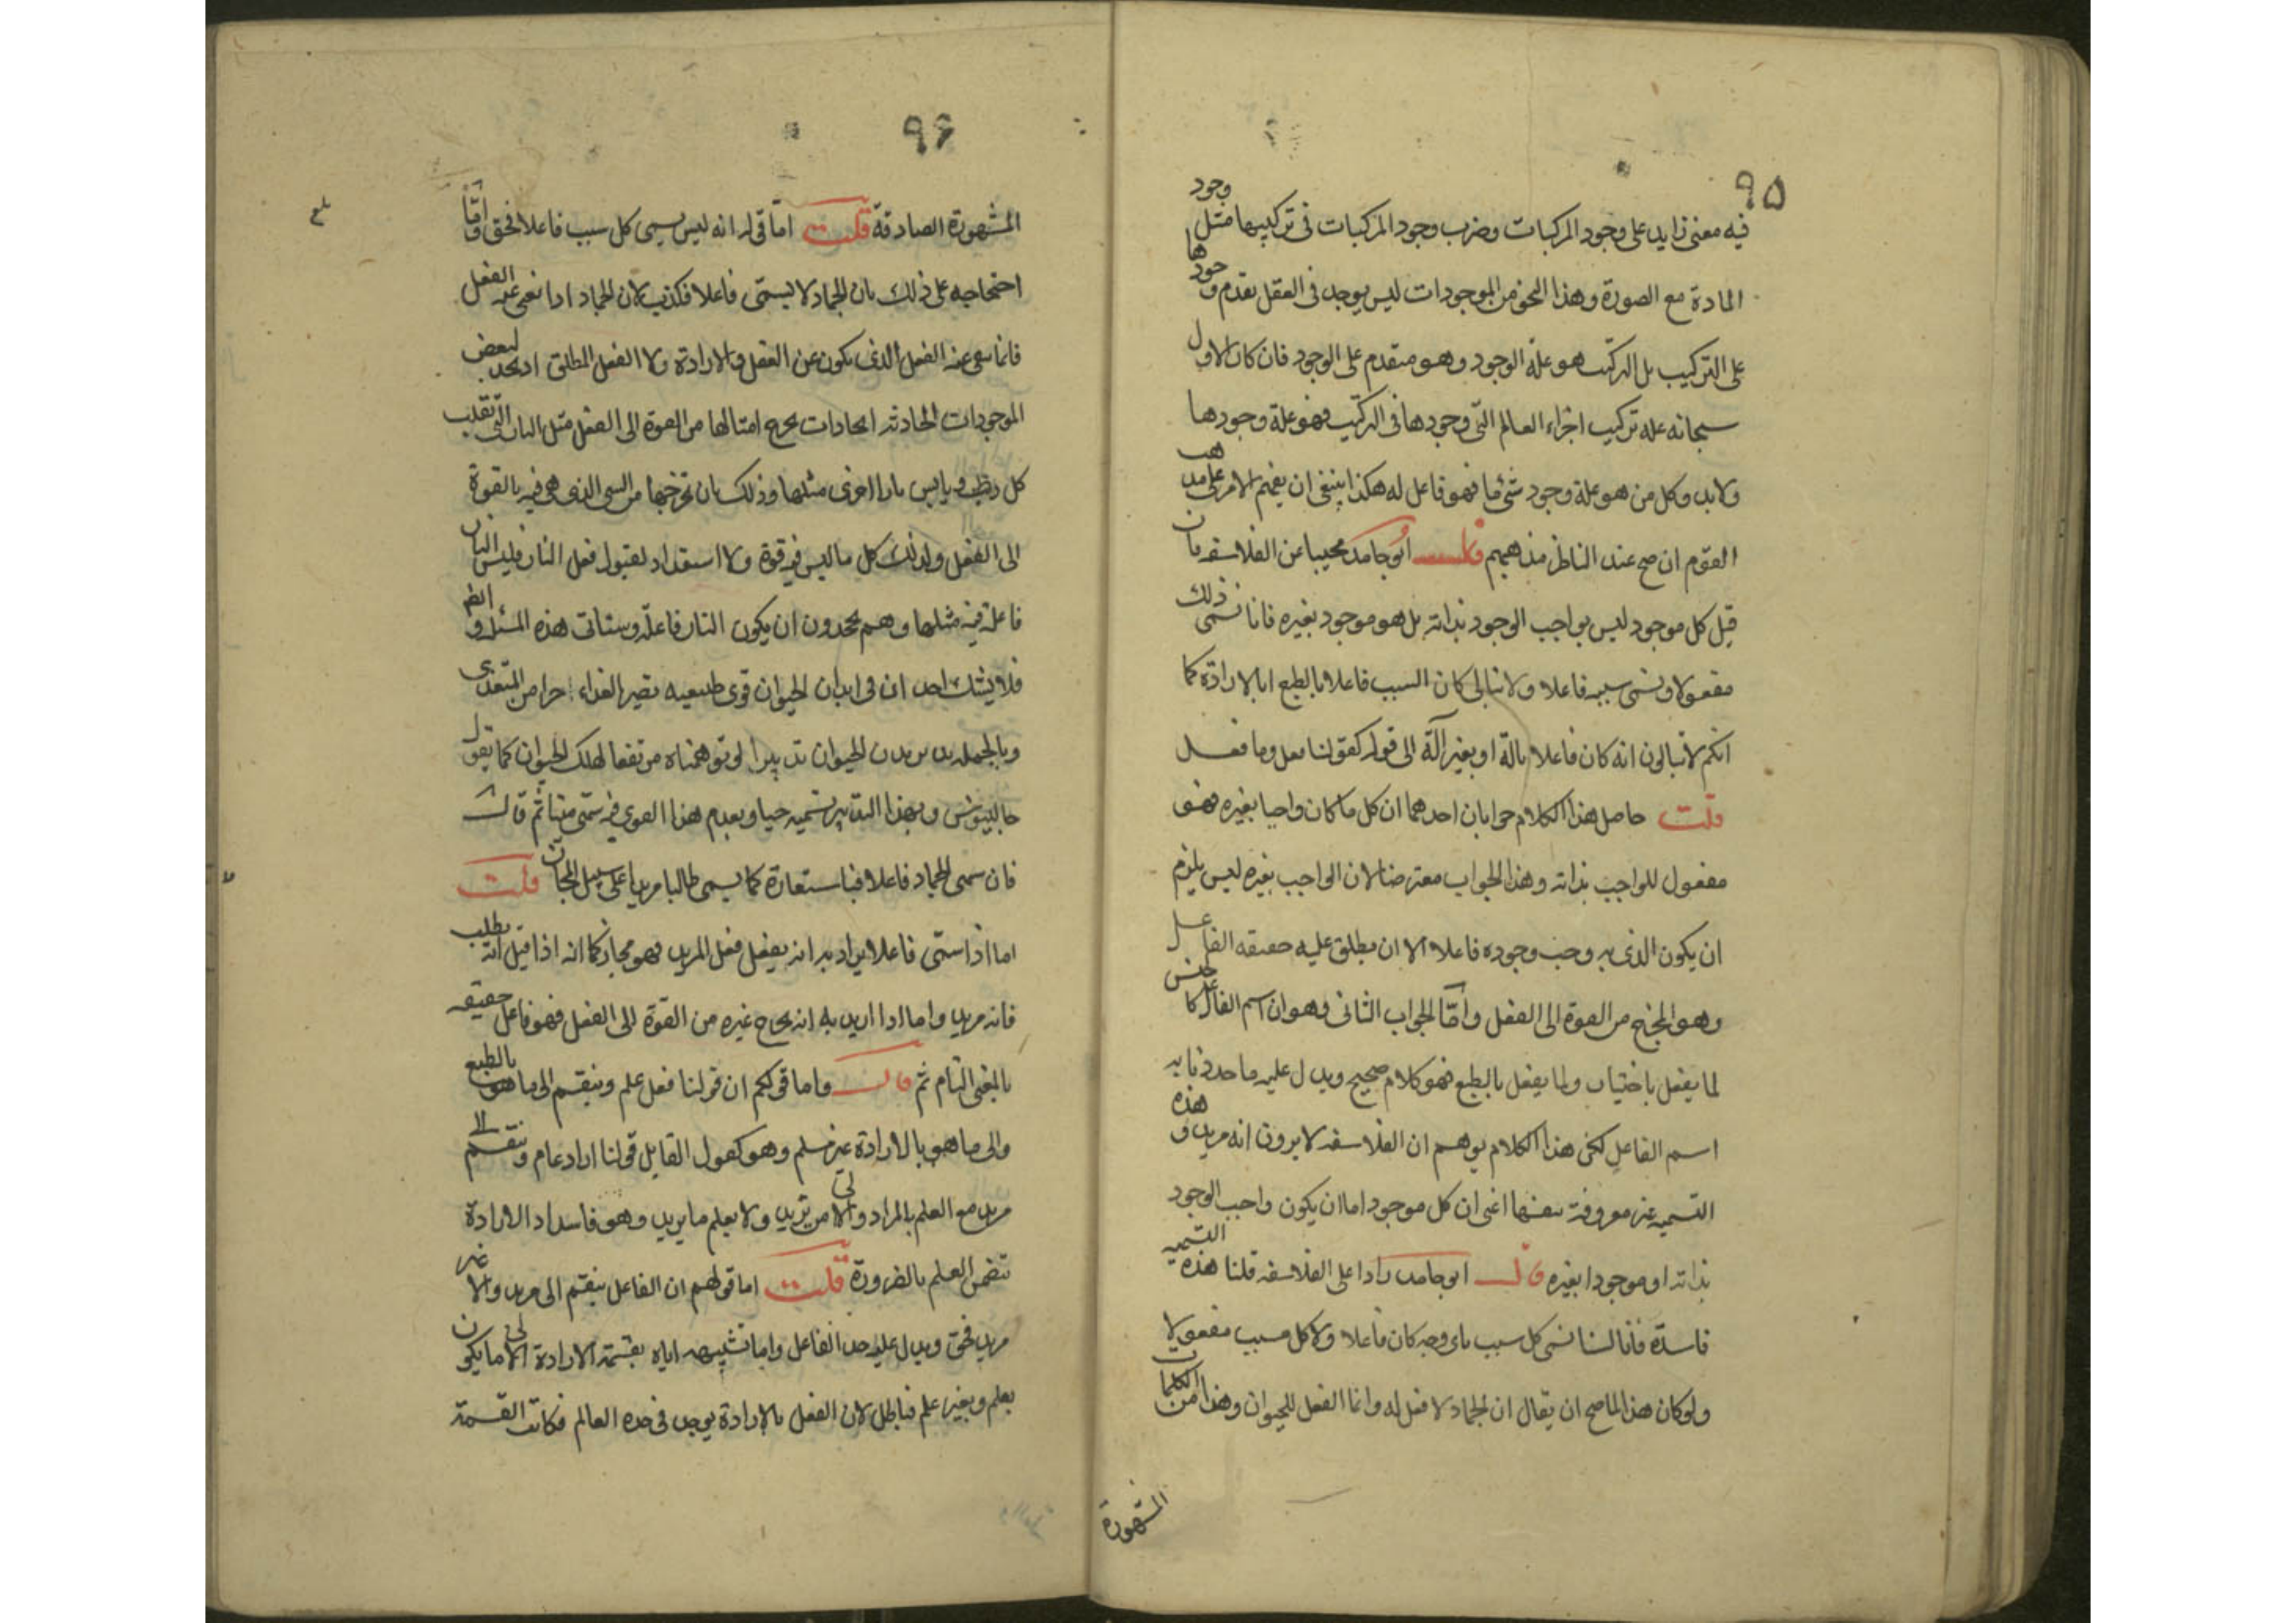 ٩٥
فيه معنى زايد على وجود المركبات وضرب وجود المركبات فى تركيبها مثل وجود
المادة مع الصورة وهذا النحو من الموجودات ليس يوجد فى العقل تقدم وجودها
على التركيب بل التركيب هو علة الوجود وهو متقدم على الوجود فان كان الاول
سبحانه علة تركيب اجزاء العالم التى وجودها فى التركيب فهو علة وجودها
ولابد وكل من هو علة وجود شئ ما فهو فاعل له هكذا ينبغى ان يفهم الامر على مذهب
القوم ان صح عند الناظر مذهبهم قال ابو حامد مجيبا عن الفلاسفه فان
قيل كل موجود ليس بواجب الوجود بذاته بل هو موجود بغيره فانا نسمى ذلك
مفعولا ونسمى سببه فاعلا ولا نبالى كان السبب فاعلا بالطبع او بالارادة كما
انكم لا تبالون انه كان فاعلا بالة او بغير آلة الى قوله كقولنا فعل وما فعل
قلت حاصل هذا الكلام جوابان احدهما ان كل ما كان واجبا بغيره فهو
مفعول للواجب بذاته وهذا الجواب معترض لان الواجب بغيره ليس يلزم
ان يكون الذى به وجب وجوده فاعلا الا ان يطلق عليه حقيقه الفاعل
وهو المخرج من القوة الى الفعل وامّا الجواب الثانى وهو ان اسم الفاعل كالجنس
لما يفعل باختيار ولما يفعل بالطبع فهو كلام صحيح ويدل عليه ما حددنا به
اسم الفاعل لكن هذا الكلام يوهم ان الفلاسفه لا يرون انه مريد وهذه
القسمه غير معروفة بنفسها اعنى ان كل موجود اما ان يكون واجب الوجود
بذاته او موجودا بغيره قال ابو حامد رادا على الفلاسفه قلنا هذه التسميه
فاسدة فانا لسنا نسمى كل سبب باى وجه كان فاعلا ولا كل مسبب مفعولا
ولو كان هذا لما صح ان يقال ان الجماد لا فعل له وانما الفعل للحيوان وهذا من الكلمات
المشهورة
٩٦
المشهورة الصادقة قلت امّا قوله انه ليس يسمى كل سبب فاعلا فحق وامّا
احتجاجه على ذلك بان الجماد لا يسمّى فاعلا فكذب لان الجماد اذا نفى عنه الفعل
فانما ينفى عنه الفعل الذى يكون عن العقل والارادة ولا الفعل المطلق اذ نجد لبعض
الموجودات الحادثه ايجادات يخرج امثالها من القوة الى الفعل مثل النار التى تقلب
كل رطب ويابس نارا اخرى مثلها وذلك بان تخرجها من الشى الذى هى فيه بالقوة
الى الفعل ولذلك كل ما ليس فيه قوة ولا استعداد لقبول فعل النار فليس النار
فاعلة فيه مثلها وهم يجحدون ان يكون النار فاعلة وستاتى هذه المسئلة وايضا
فلا يشك احد ان فى ابدان الحيوان قوى طبيعيه تصير الغذاء جزا من المتغذى
وبالجمله يدبر بدن الحيوان تدبيرا لو توهمناه مرتفعا لهلك الحيوان كما يقول
جالينوس وبهذا التدبير نسميه حيا وبعدم هذا القوى فيه سمى ميتا ثم قال
فان سمى الجماد فاعلا فباستعارة كما يسمى طالبا مريدا على سبيل المجاز قلت
اما اذا سمّى فاعلا يراد به انه يفعل فعل المريد فهو مجاز كما انه اذا قيل انه يطلب
فانه مريد واما اذا اريد به انه يخرج غيره من القوة الى الفعل فهو فاعل حقيقه
بالمعنى التام ثم قال واما قولكم ان قولنا فعل علم وينقسم الى ما هو بالطبع
والى ما هو بالارادة غير مسلم وهو كقول القايل قولنا اراد عام وينقسم الى
مريد مع العلم بالمراد والى من يريد ولا يعلم ما يريد وهو فاسد اذ الارادة
تتضمن العلم بالضرورة قلت اما قولهم ان الفاعل ينقسم الى مريد والا غير
مريد فحق ويدل عليه حد الفاعل واما تشبيهه اياه بقسمة الارادة الى ما يكون
بعلم وبغير علم فباطل لان الفعل بالارادة يوجد فى حده العالم فكانت القسمة
بلغ